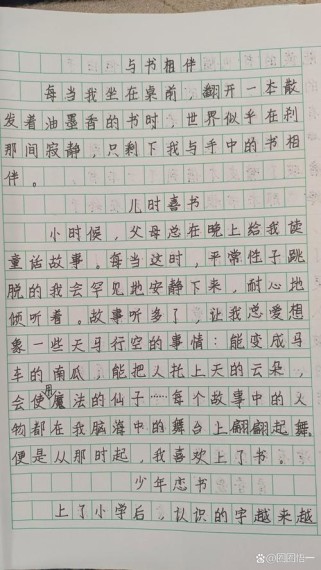 与书相伴
每当我坐在桌前，翻开一本散
发着油墨香的书时，世界似乎在刹
那间寂静，只剩下我与手中的书相
伴。
儿时喜书
小时候，父母总在晚上给我读
童话故事。每当这时，平常性子跳
脱的我会罕见地安静下来，耐心地
倾听着。故事听多了，让我总爱想
象一些天马行空的事情：能变成马
车的南瓜，能把人托上天的云朵，
会使用魔法的仙子……每个故事中的人
物都在我脑海中的舞台上翩翩起舞。
便是从那时起，我喜欢上了书。
少年恋书
上了小学后，认识的字越来越